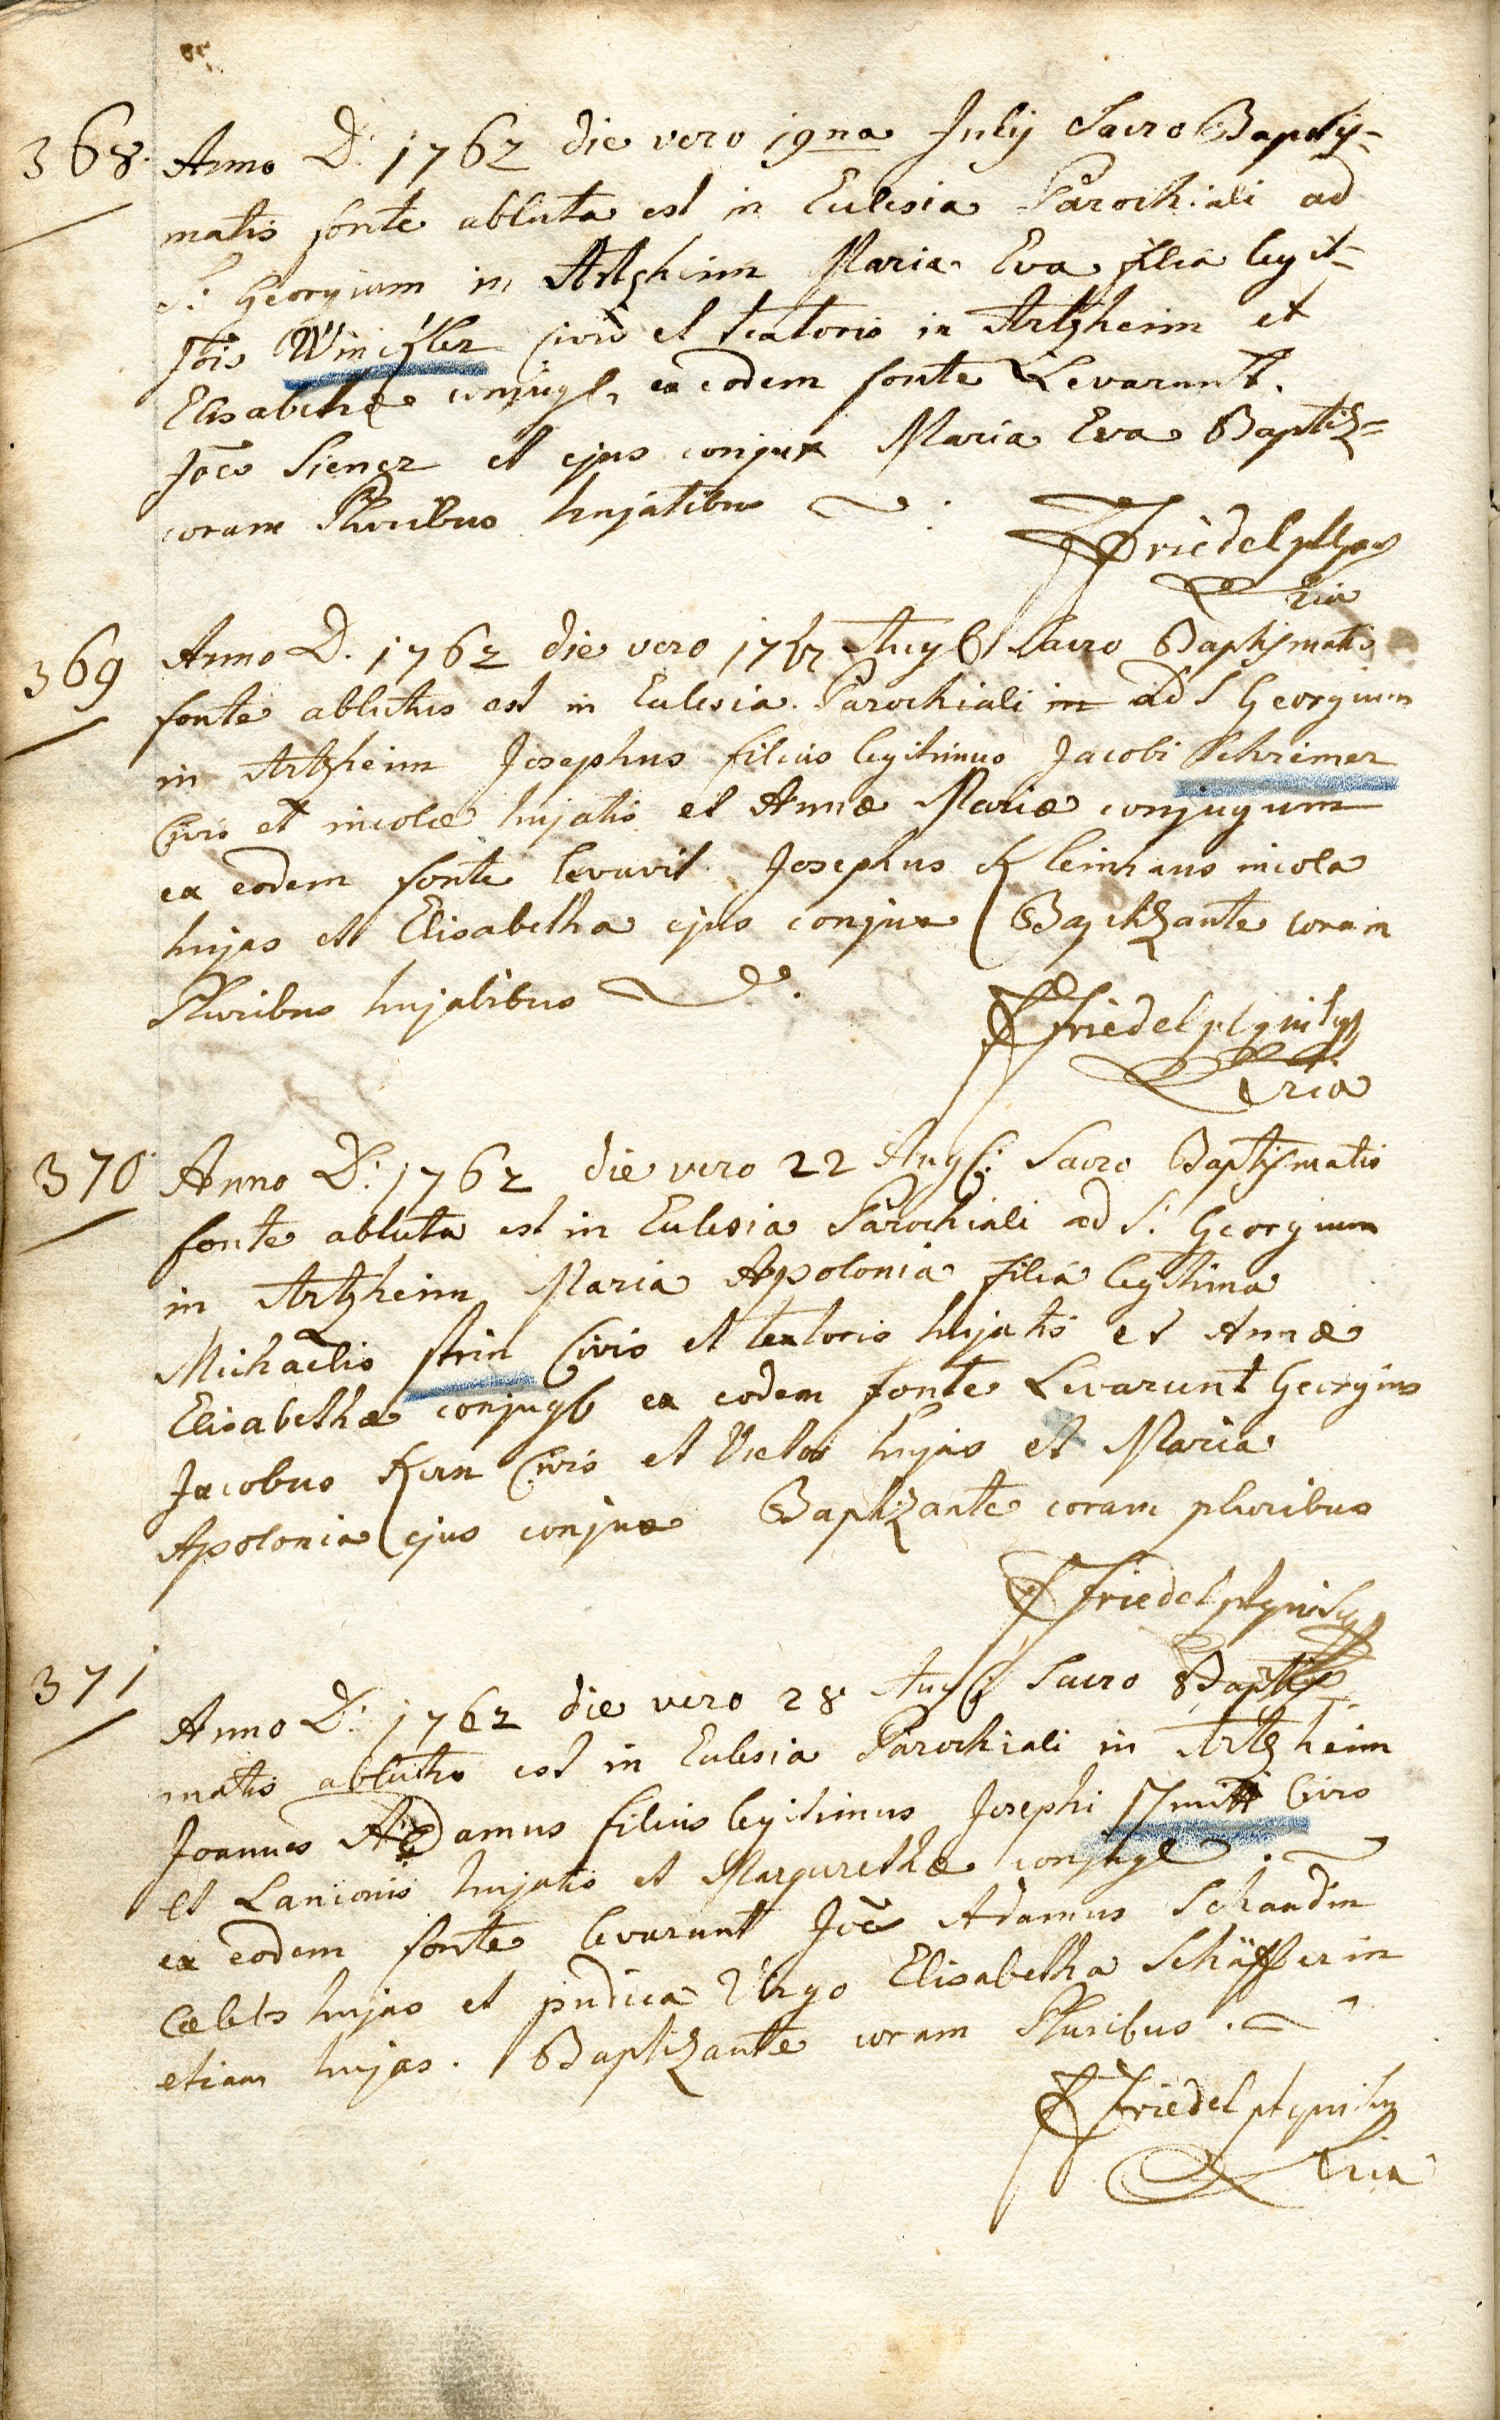 368. Anno D: 1762 die vero 19na Julij Sacro Baptis-
matis fonte abluta est in Eclesia Parochiali ad
S: Georgium in Artzheim Maria Eva filia legit-
Jois Winckler Civis et textoris in Artzheim et
Elisabethæ conjugl, ex eodem fonte Levarunt.
Joēs Siener et ejus conjux Maria Eva Baptiz=
coram Pluribus hujatibus
Friedel
369 Anno D. 1762 die vero Aug Sacro Baptismatis
fonte ablutus est in Eclesia Parochiali in ad S Georgium
in Artzheim Josephus filius legitimus Jacobi Schreiner
Civis et incolæ hujatis et Annæ Mariæ conjugum
ex eodem fonte levavit Josephus Kleinhans incola
hujas et Elisabetha ejus conjux Baptizante coram
Pluribus hujatibus
Friedel
370 Anno D: 1762 die vero 22 Aug: Sacro Baptismatis
fonte abluta est in Eclesia Parochiali ad S: Georgium
in Artzheim Maria Apolonia filia legitima
Michaelis Civis et textoris hujatis et Annæ
Elisabethæ conjugb ex eodem fonte Levarunt Georgius
Jacobus Kern Civis et Vietor hujas et Maria
Apolonia ejus conjux Baptizante coram pluribus
Friedel
371 Anno D: 1762 die vero 28 Aug Sacro Baptis-
matis ablutus est in Eclesia Parochiali in Artzheim
Joannes Adamus filius legitimus Josephi Civis
et Lanionis hujatis et Margarethæ conjugl
ex eodem fonte levarunt Joēs Adamus Schaudin
Cælebs hujas et pudica Virgo Elisabetha Schäfferin
etiam hujas. Baptizante coram Pluribus.
Friedel